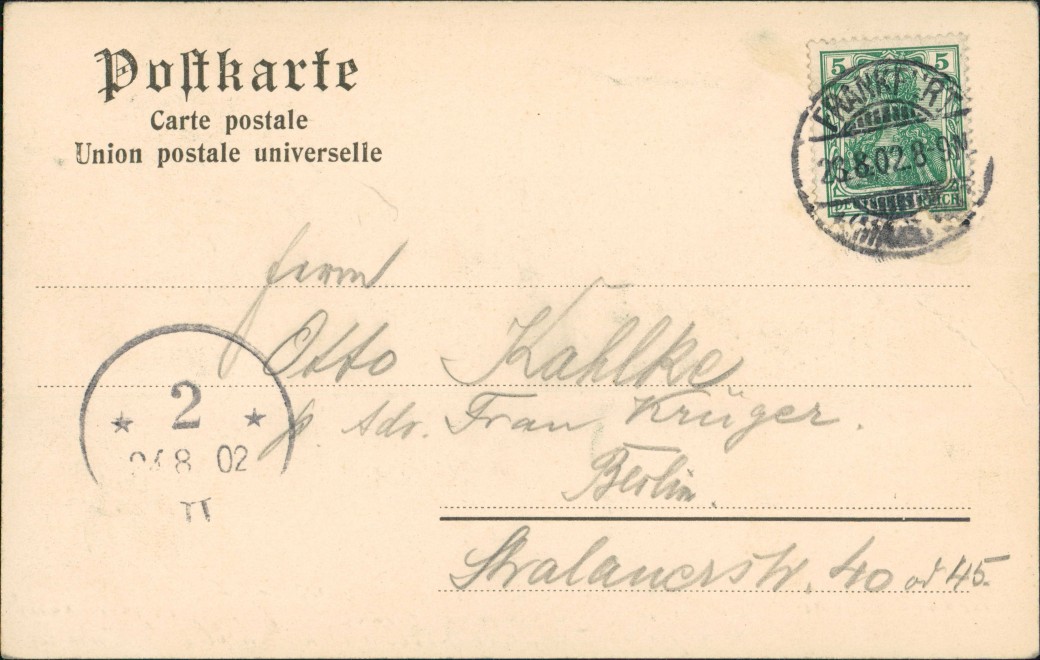 Postkarte
Carte postale
Union postale universelle
5 5
FRANKFURT
26.8.02.8-9N.
REICH
Herrn
Otto Kahlke
p Adr. Frau Krüger.
Berlin.
Stralauerstr. 40 od 45.
2
8 02